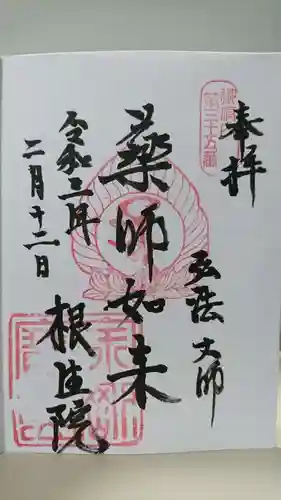 奉拝
弘法大師
薬師如来
令和三年
二月十二日
根生院